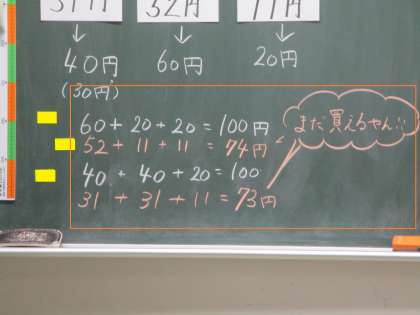 31円 52円 11円
↓ ↓ ↓
40円 60円 20円
(30円)
60+20+20=100円
52+11+11=74円
40+40+20=100
31+31+11=73円
まだ買えちゃん!!